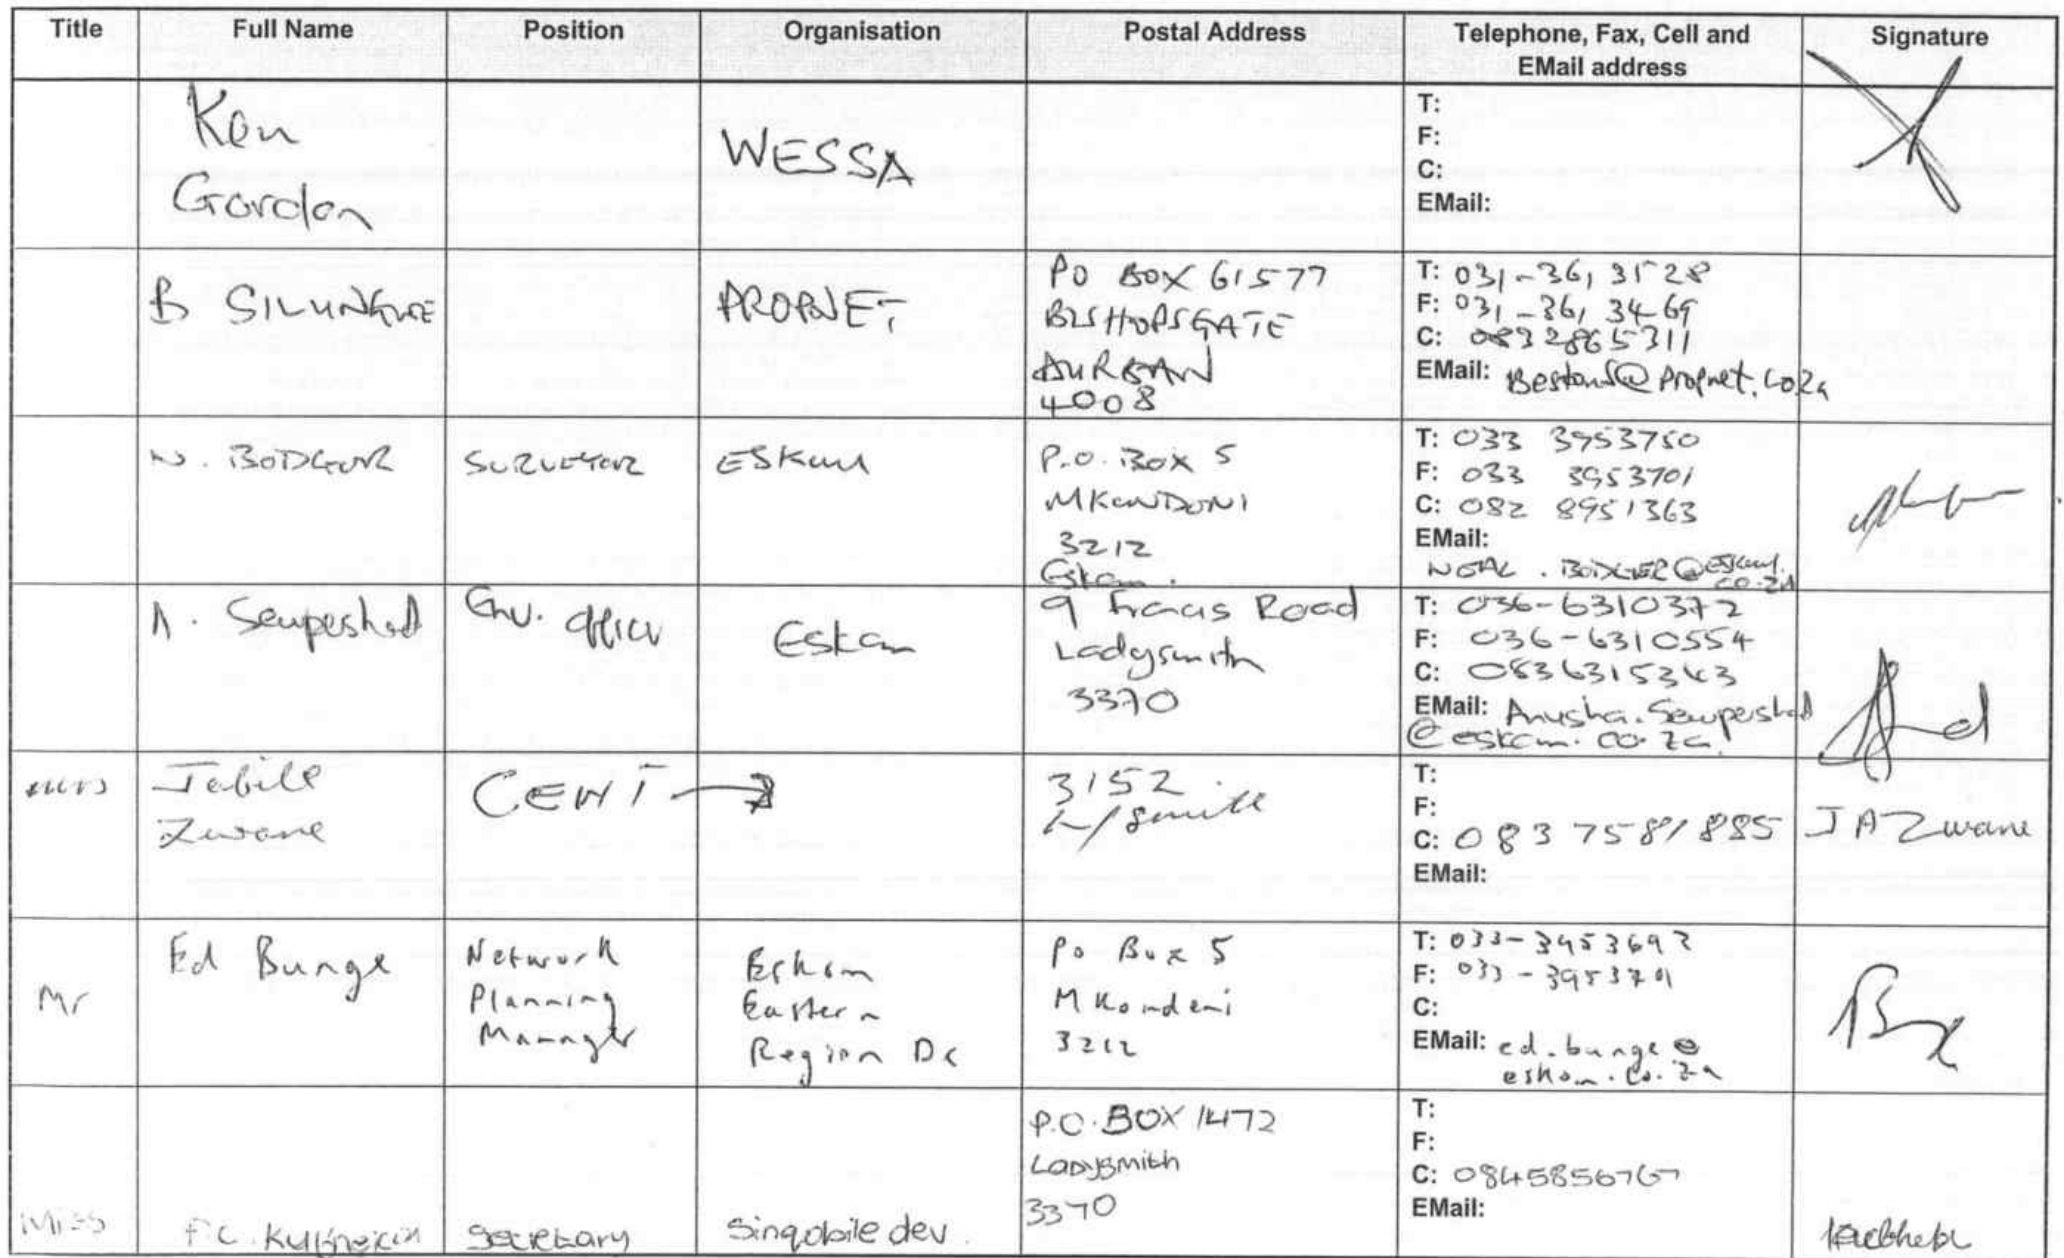 Title Full Name Position Organisation Postal Address Telephone, Fax, Cell and EMail address Signature
Ken
Gordon
WESSA
T:
F:
C:
EMail:
B SILUNGWE
PROPNET
PO BOX 61577
BISHOPSGATE
DURBAN
4008
T: 031-361 3528
F: 031-361 3469
C: 0832865311
EMail: @propnet.co.za
N. BODGER
SURVEYOR
ESKOM
P.O. BOX 5
MKONDONI
3212
T: 033 3953750
F: 033 3953701
C: 082 8951363
EMail:
NOEL . BODGER@eskom.
co.za
A. Sewpershad
Env. officer
Eskom
Eskom.
9 Francis Road
Ladysmith
3370
T: 036-6310372
F: 036-6310554
C: 0836315343
EMail: Anusha.Sewpershad
@eskom.co.za
Mrs
Jabile
Zwane
CEWT
3152
L/Smith
T:
F:
C: 083 7581885
EMail:
JA Zwane
Mr
Ed Bunge
Network
Planning
Manager
Eskom
Eastern
Region Dx
Po Box 5
Mkondeni
3212
T: 033-3953692
F: 033-3953701
C:
EMail: ed.bunge@
eskom.co.za
Miss
F.C.
Secretary
Singobile dev.
P.O. BOX 1472
Ladysmith
3370
T:
F:
C: 0845856767
EMail: